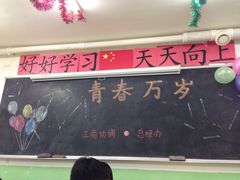 好好学习 天天向上
青春万岁
工商协调 总经办